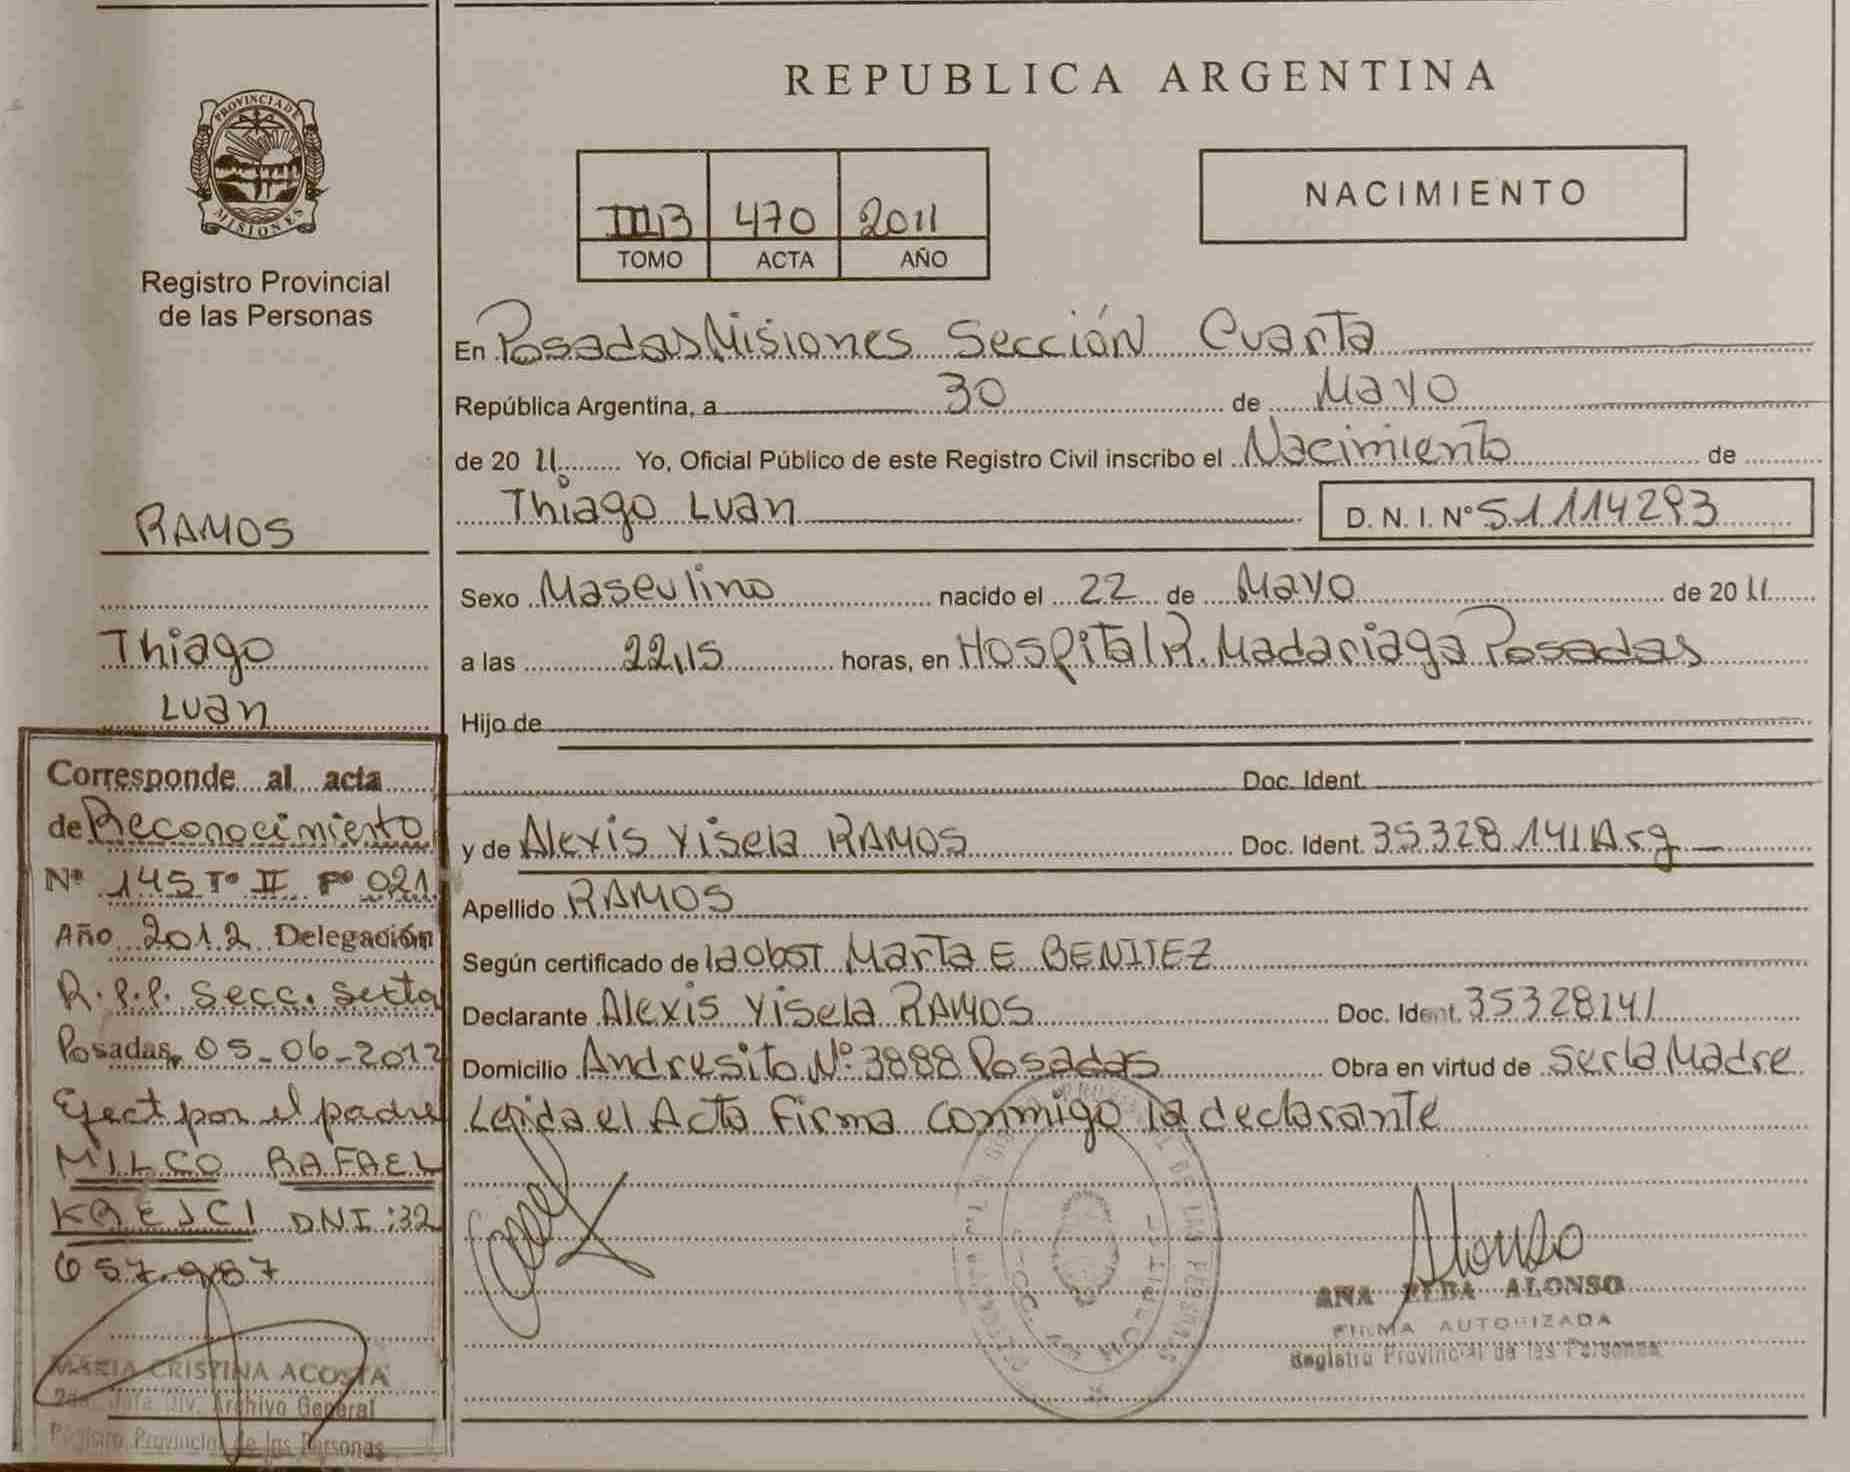 PROVINCIA DE
MISIONES
Registro Provincial
de las Personas
RAMOS
Thiago
Luan
Corresponde al acta
de Reconocimiento
Nº 145 Tº II Fº 021
Año 2012 Delegación
R.P.P. Secc. Sexta
Posadas, 05-06-2012
Efect por el padre
MILCO RAFAEL
KREJCI DNI:32
657.987
MARIA CRISTINA ACOSTA
Div. Archivo General
Registro Provincial de las Personas
REPUBLICA ARGENTINA
III 13 470 2011
TOMO ACTA AÑO
NACIMIENTO
En Posadas Misiones Sección Cuarta
República Argentina, a 30 de Mayo
de 20 11 Yo, Oficial Público de este Registro Civil inscribo el Nacimiento de
Thiago Luan D. N. I. Nº 51.114293
Sexo Masculino nacido el 22 de Mayo de 20 11
a las 22,15 horas, en Hospital R. Madariaga Posadas
Hijo de
Doc. Ident.
y de Alexis Yisela RAMOS Doc. Ident. 35.328.141 Arg
Apellido RAMOS
Según certificado de la Obst Marta E BENITEZ
Declarante Alexis Yisela RAMOS Doc. Ident. 35328141
Domicilio Andresito Nº 3888 Posadas Obra en virtud de Ser la Madre
Leida el Acta Firma Conmigo la declarante
Alonso
ANA ALONSO
FIRMA AUTORIZADA
Registro Provincial de las Personas